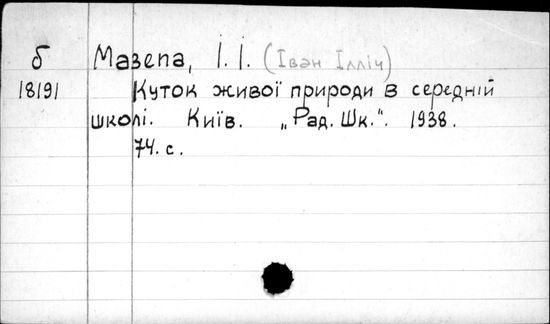 б Мазепа, І. І. (Іван Ілліч)
18191 Куток живої природи в середній
школі. Київ. „Рад. Шк.“. 1938.
74. с.